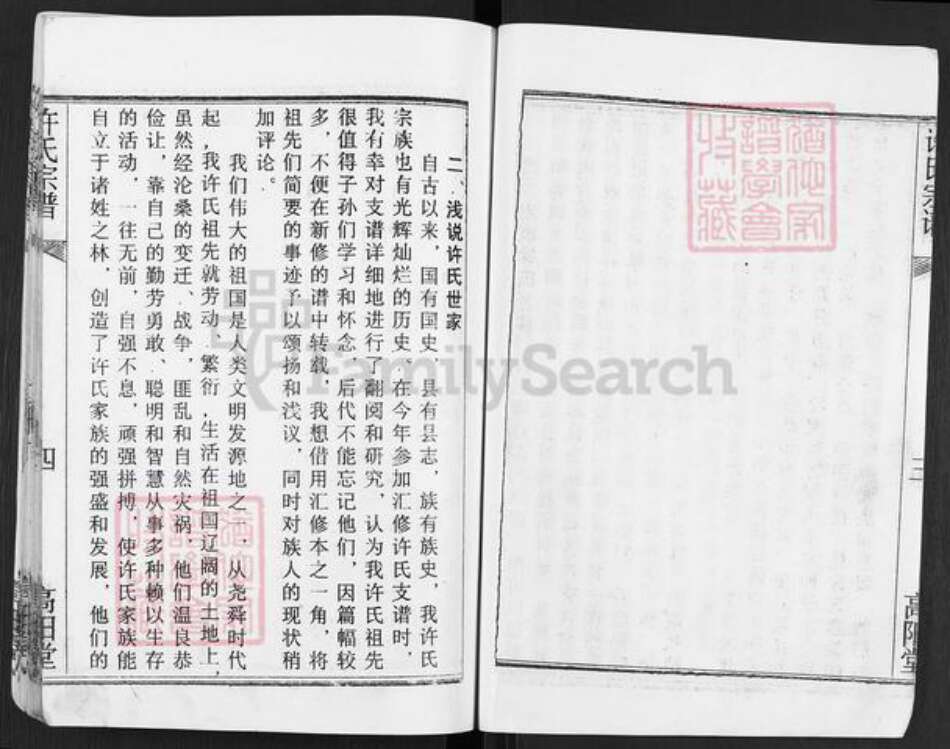 许氏宗谱
三
高阳堂
二、浅说许氏世家
自古以来，国有国史，县有县志，族有族史，我许氏
宗族也有光辉灿烂的历史，在今年参加汇修许氏支谱时，
我有幸对支谱详细地进行了翻阅和研究，认为我许氏祖先
很值得子孙们学习和怀念，后代不能忘记他们，因篇幅较
多，不便在新修的谱中转载，我想借用汇修本之一角，将
祖先们简要的事迹予以颂扬和浅议，同时对族人的现状稍
加评论。
我们伟大的祖国是人类文明发源地之一，从尧舜时代
起，我许氏祖先就劳动、繁衍，生活在祖国辽阔的土地上，
虽然经沦桑的变迁、战争，匪乱和自然灾祸，他们温良恭
俭让，靠自己的勤劳勇敢、聪明和智慧从事多种赖以生存
的活动，一往无前，自强不息，顽强拼搏，使许氏家族能
自立于诸姓之林，创造了许氏家族的强盛和发展，他们的
许氏宗谱
四
高阳堂
FamilySearch